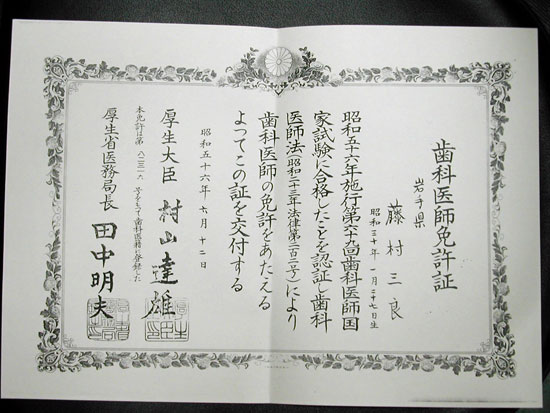 歯科医師免許証
岩手県
藤村三良
昭和三十年一月二十七日生
昭和五十六年施行第六十九回歯科医師国
家試験に合格したことを認証し歯科
医師法(昭和二十三年法律第二百二号)により
歯科医師の免許をあたえる
よってこの証を交付する
昭和五十六年六月十二日
厚生大臣 村山達雄
本免許は第 号をもって歯科医籍に登録した
厚生省医務局長 田中明夫